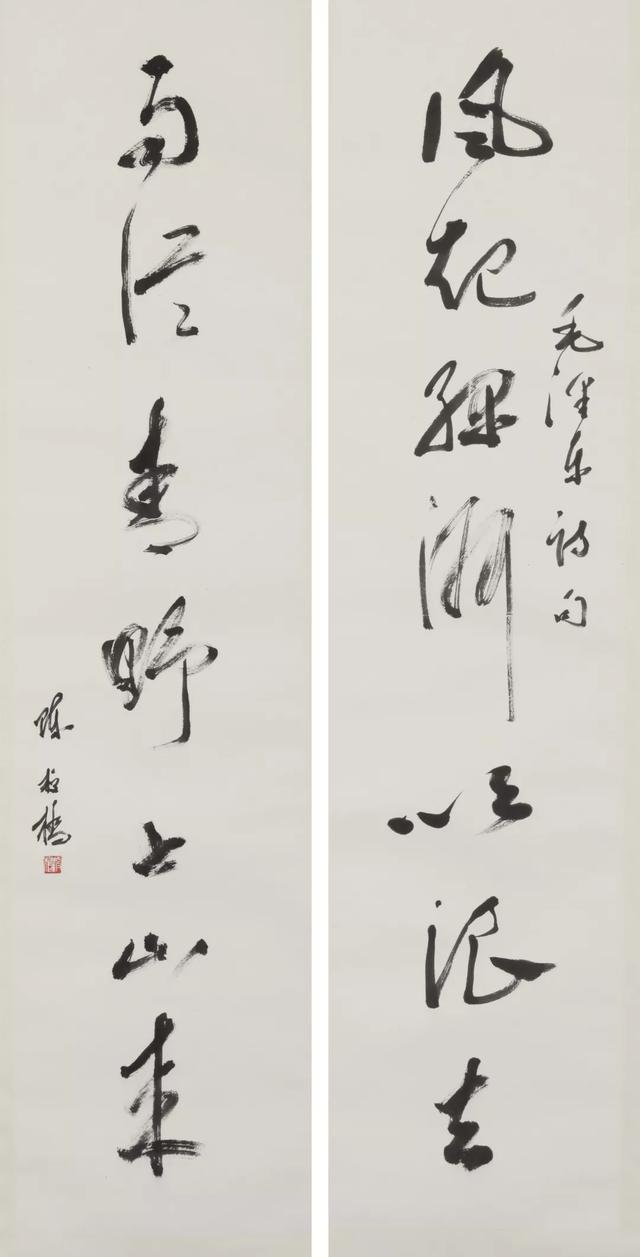 风起绿洲吹浪去
毛泽东诗句
雨从青野上山来
陈